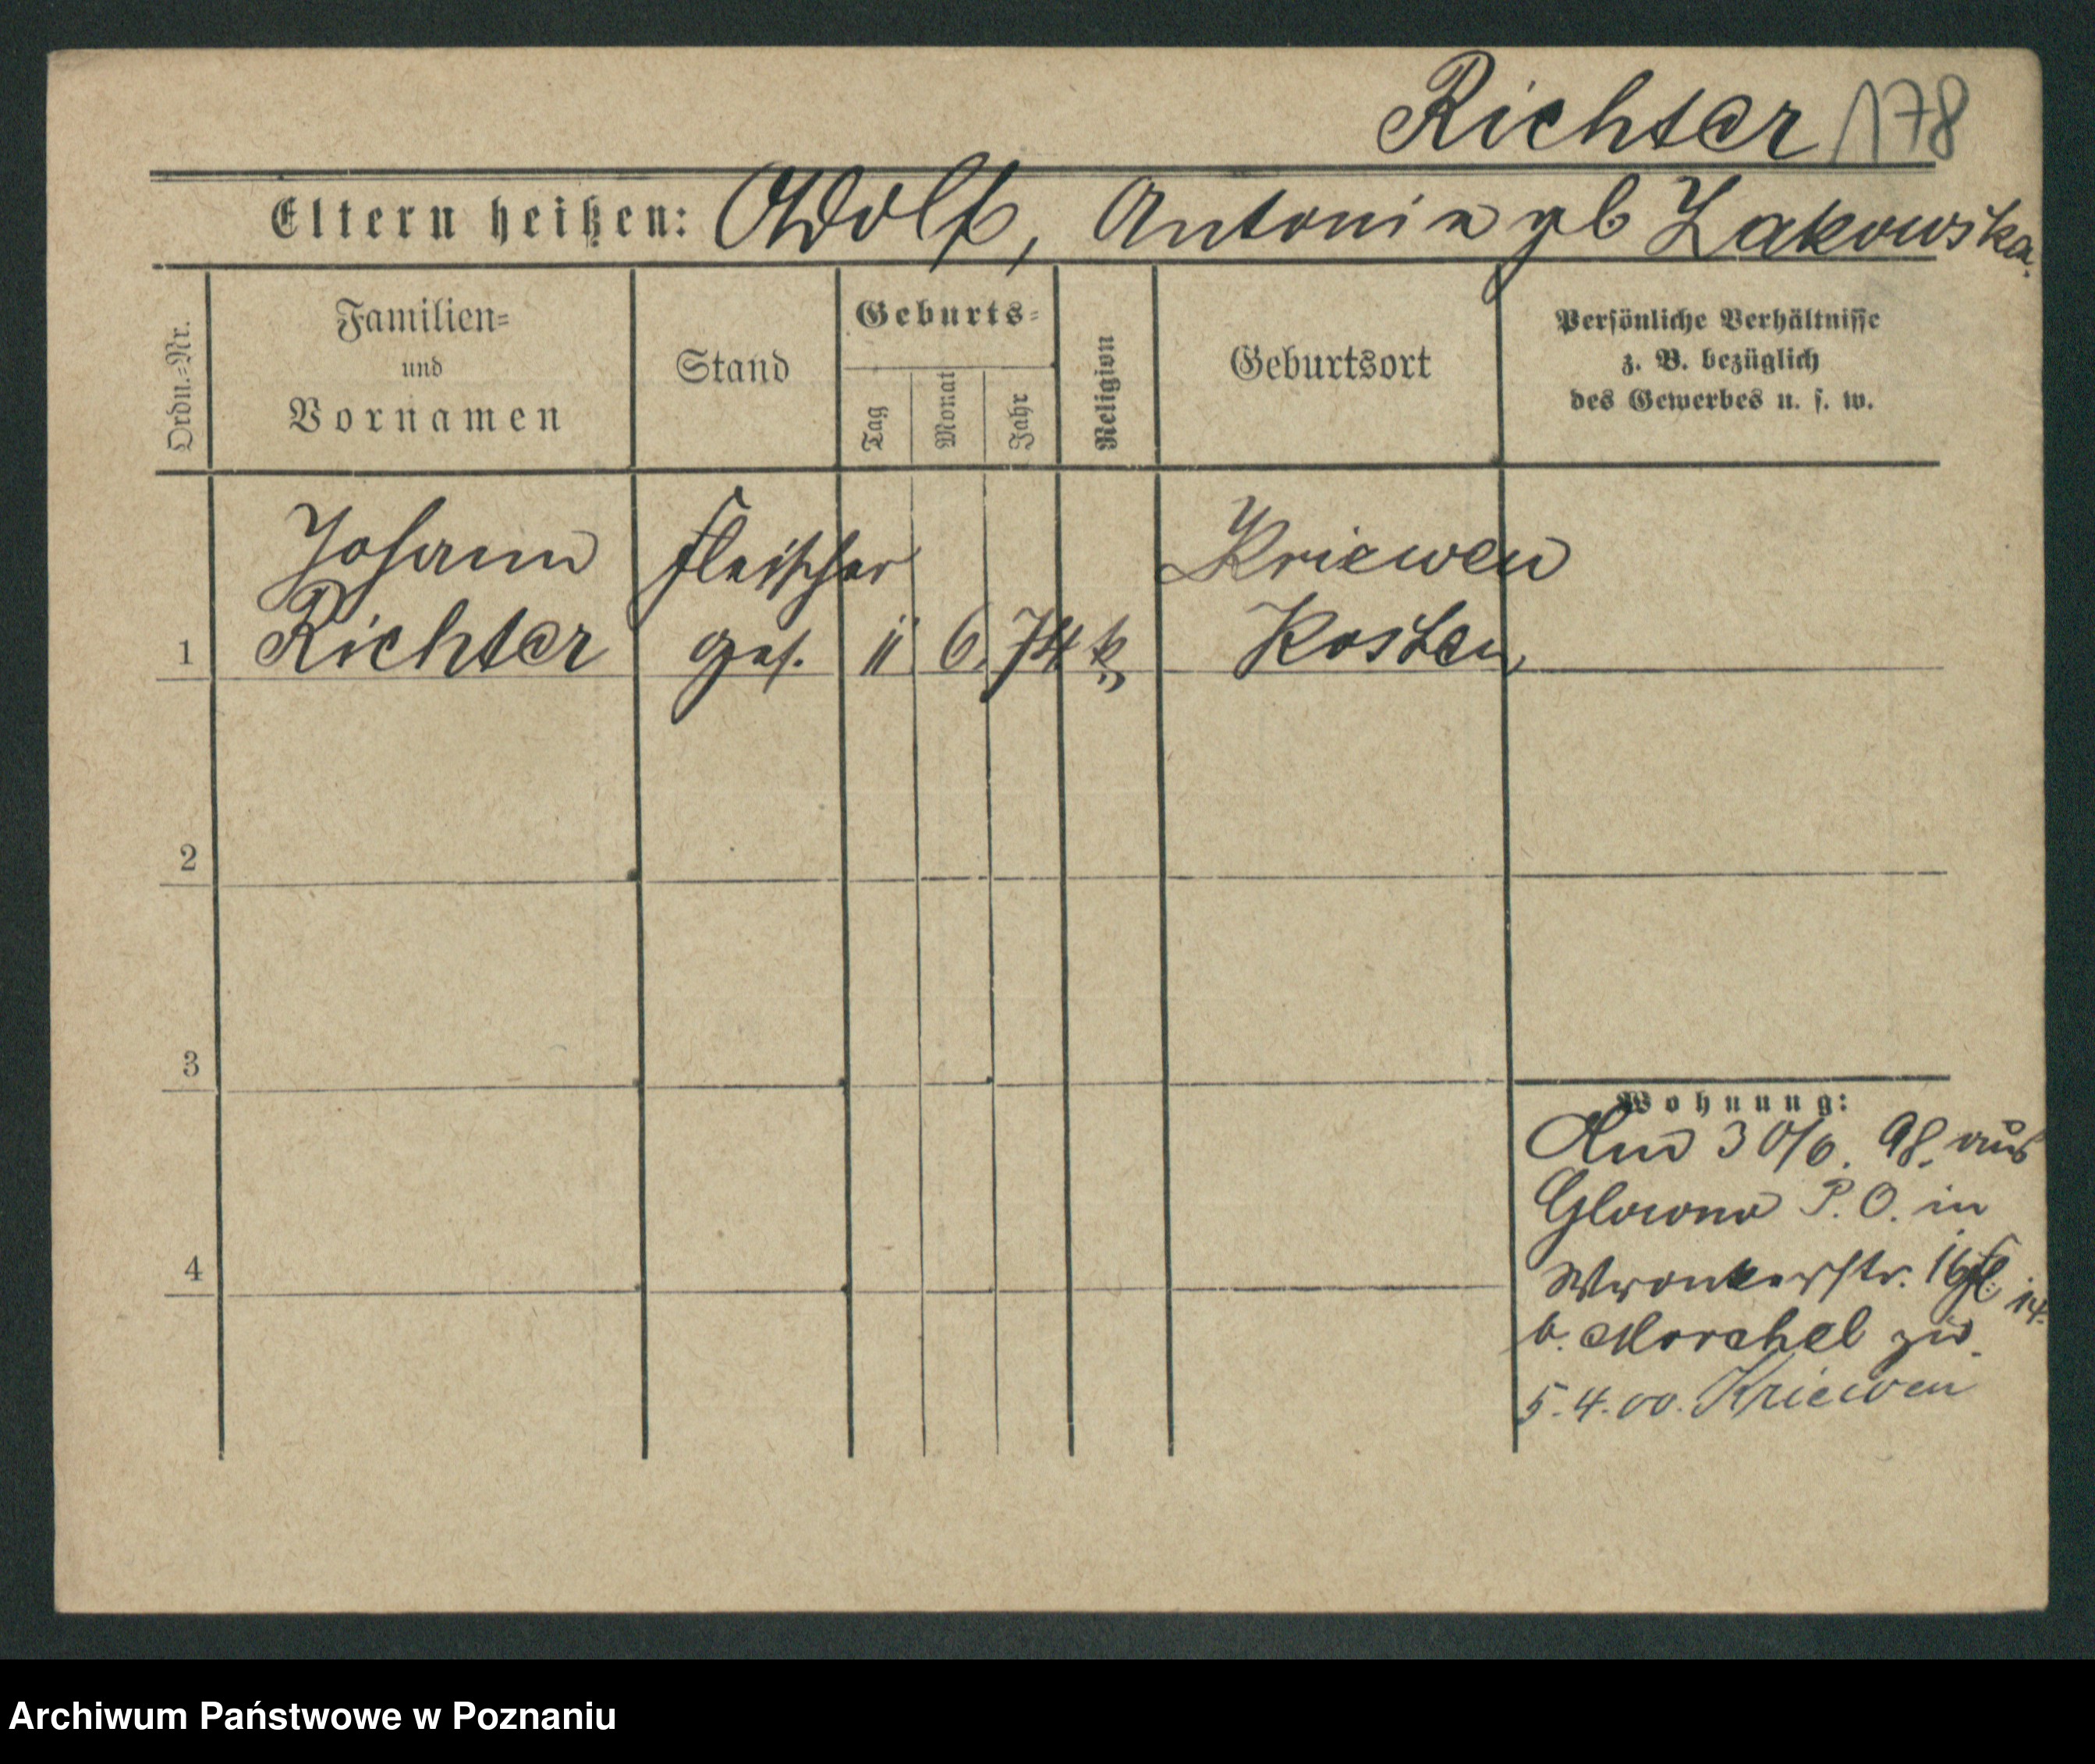 Richter 178
Eltern heißen: Adolf, Antonina gb Zakowska.
Ordn.-Nr.
Familien-
und
Vornamen
Stand
Geburts-
Tag
Monat
Jahr
Religion
Geburtsort
Persönliche Verhältnisse
z. B. bezüglich
des Gewerbes u. s. w.
Johann Fleischer Kriewen
1 Richter Ges. 11 6. 74 k Kosten
2
3
4
Wohnung:
30/6. 98. aus
Glowno P.O. in
Wronkerstr. 16
b. Morchel
5.4.00. Kriewen
Archiwum Państwowe w Poznaniu